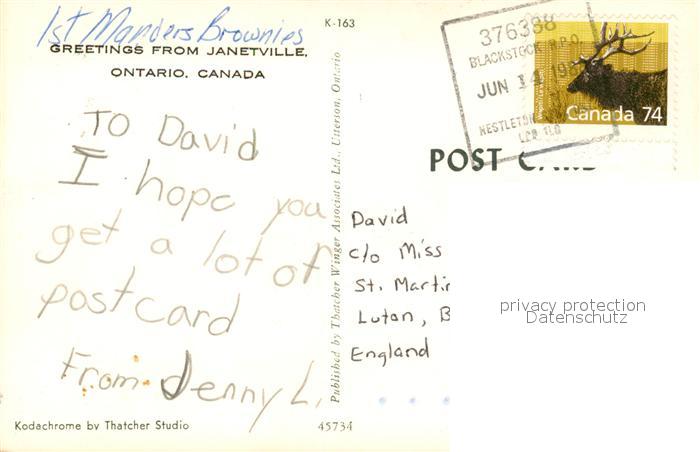 1st Manders Brownies
K-163
GREETINGS FROM JANETVILLE,
ONTARIO, CANADA
TO David
I hope you
get a lot of
postcard
From Jenny L.
Kodachrome by Thatcher Studio
45734
Published by Thatcher Winger Associates Ltd., Utterson, Ontario
376388
BLACKSTOCK R.P.O.
JUN 14
L0B 1L0
Canada 74
POST
David
c/o Miss
St. Martin
Luton, B
England
privacy protection
Datenschutz